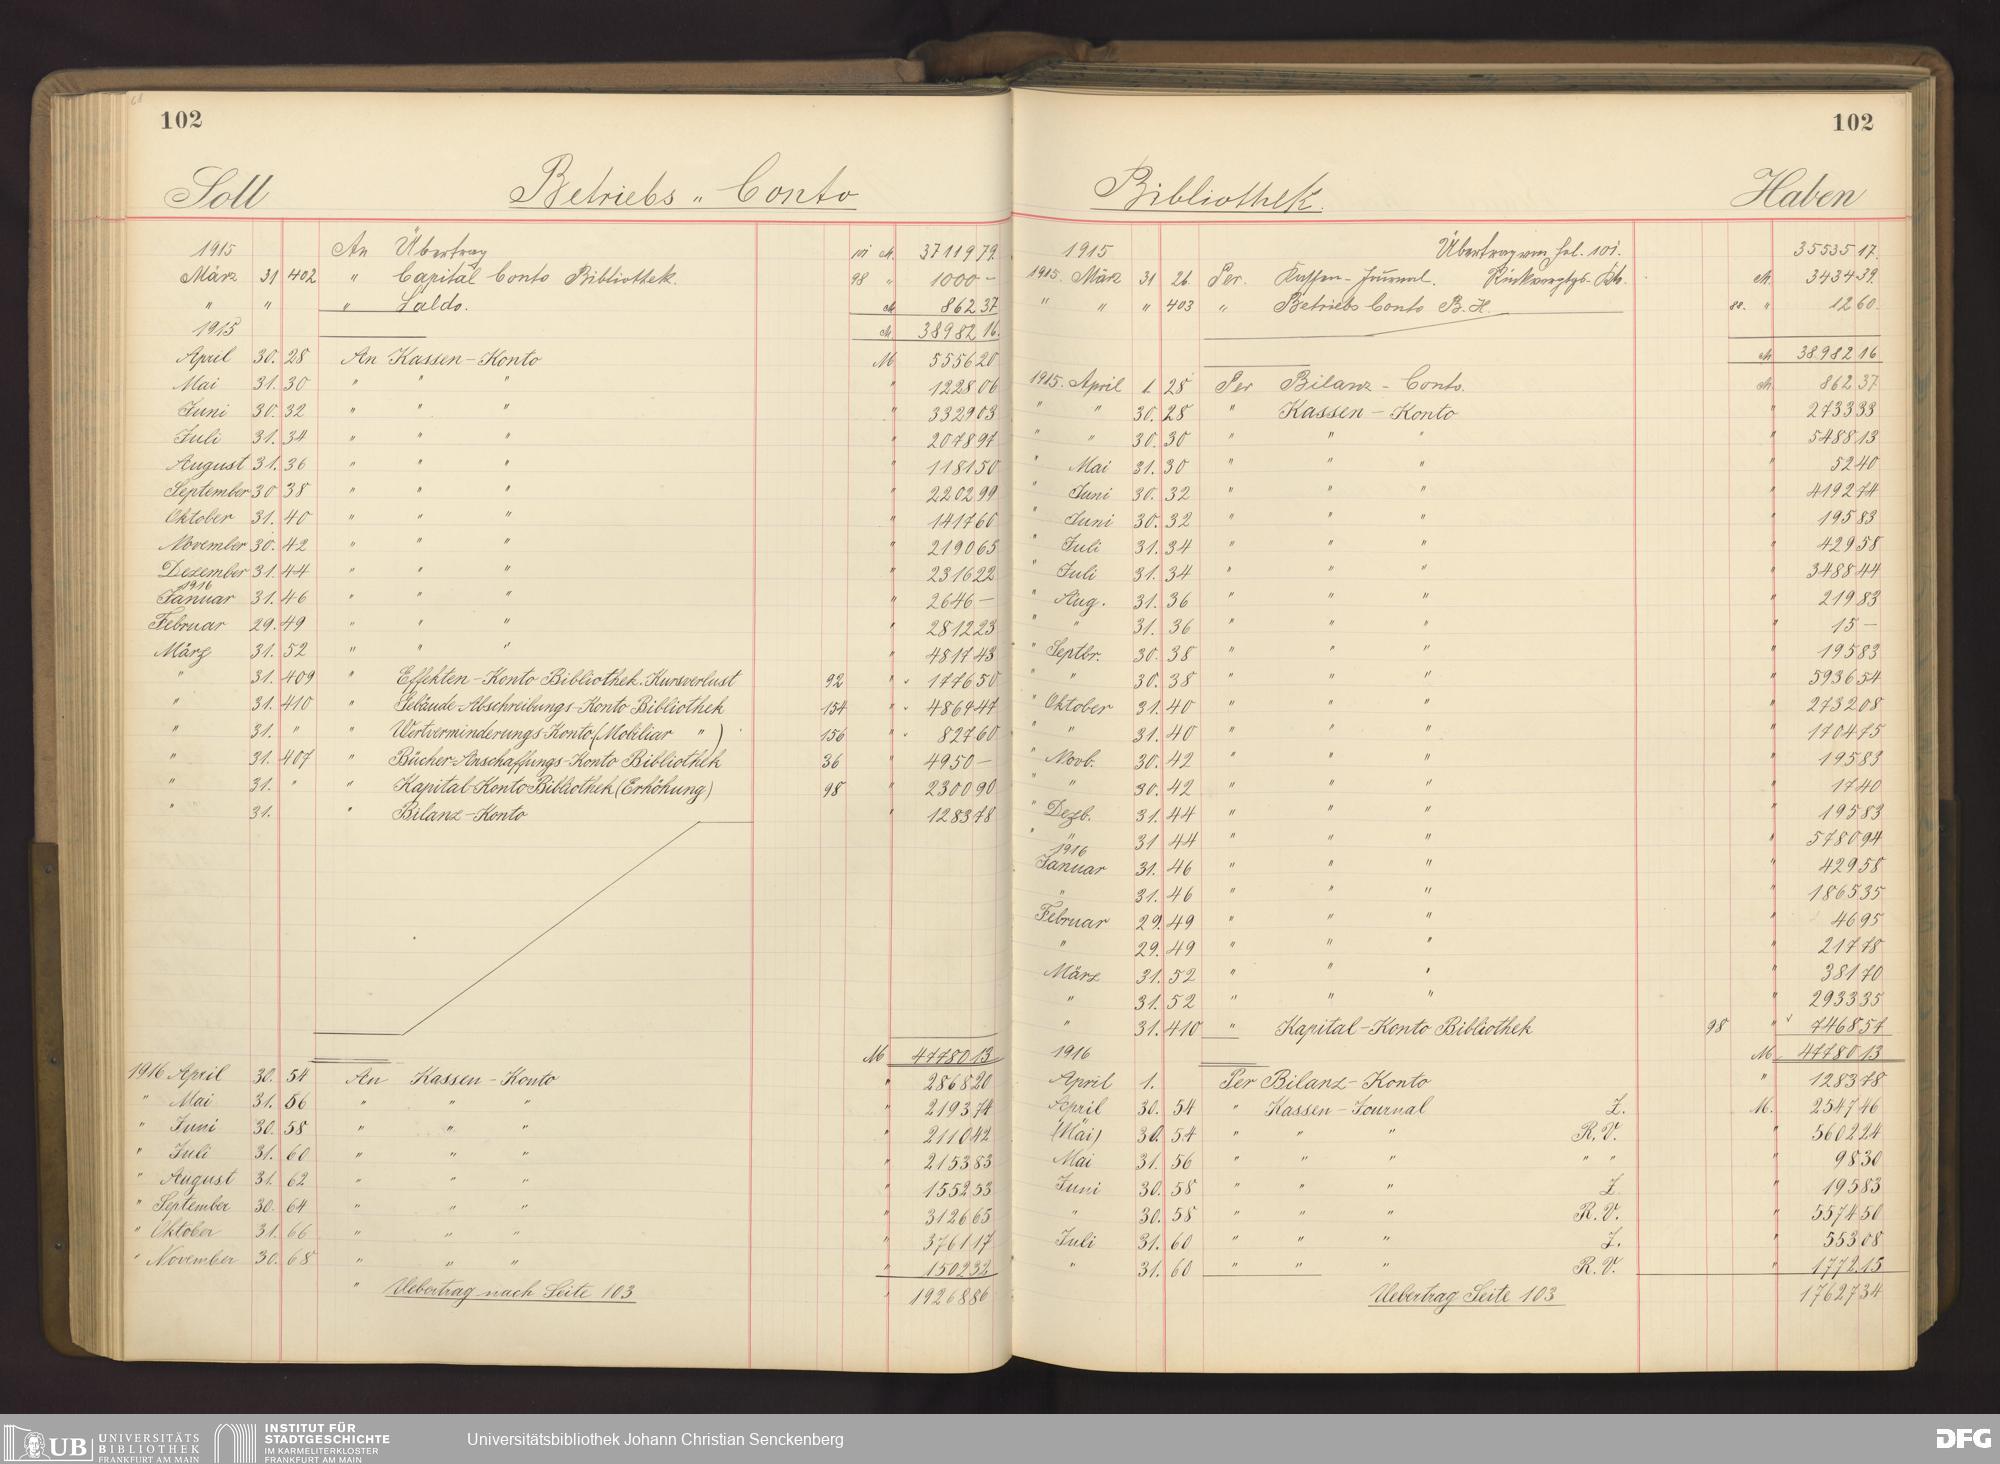 102
Soll Betriebs " Conto
1915 An Übertrag 101 M. 37119 79
März 31 402 " Capital Conto Bibliothek. 98 " 1000 –
" " " Saldo. M 862 37
1915 M. 38982 16.
April 30. 28 An Kassen-Konto M 5556 20
Mai 31. 30 " " " " 1228 06
Juni 30. 32 " " " " 3329 03
Juli 31. 34 " " " " 2078 97
August 31. 36 " " " " 1181 50
September 30 38 " " " " 2202 99
Oktober 31. 40 " " " " 1417 60
November 30. 42 " " " " 2190 65
Dezember 31. 44 " " " " 2316 22
1916
Januar 31. 46 " " " " 2646 –
Februar 29. 49 " " " " 2812 23
März 31. 52 " " " " 4817 43
" 31. 409 " Effekten-Konto Bibliothek. Kursverlust 92 " 1776 50
" 31. 410 " Gebäude-Abschreibungs-Konto Bibliothek 154 " 4869 47
" 31. " " Wertverminderungs-Konto (Mobiliar " ) 156 " 827 60
" 31. 407 " Bücher-Anschaffungs-Konto Bibliothek 36 " 4950 –
" 31. " " Kapital-Konto Bibliothek (Erhöhung) 98 " 2300 90
" 31. " Bilanz-Konto " 1283 78
M 47780 13
1916 April 30. 54 An Kassen-Konto " 2868 20
" Mai 31. 56 " " " " 2193 74
" Juni 30. 58 " " " " 2110 42
" Juli 31. 60 " " " " 2153 83
" August 31. 62 " " " " 1552 53
" September 30. 64 " " " " 3126 65
" Oktober 31. 66 " " " " 3761 17
" November 30. 68 " " " " 1502 32
" Uebertrag nach Seite 103 " 19268 86
102
Bibliothek. Haben
1915 Übertrag von fol. 101. 35535 17.
1915. März 31 26 Per. Kassen-Journal. M. 3434 39.
" " " 403 " Betriebs Conto B.H. 88. " 12 60.
M 38982 16
1915. April 1. 28 Per Bilanz-Conto. M. 862 37.
" " 30. 28 " Kassen-Konto " 2733 33
" " 30. 30 " " " " 5488 13
" Mai 31. 30 " " " " 52 40
" Juni 30. 32 " " " " 4192 74
" Juni 30. 32 " " " " 195 83
" Juli 31. 34 " " " " 429 58
" Juli 31. 34 " " " " 3488 44
" Aug. 31. 36 " " " " 219 83
" " 31. 36 " " " " 15 –
" Septbr. 30. 38 " " " " 195 83
" " 30. 38 " " " " 5936 54
" Oktober 31. 40 " " " " 2732 08
" " 31. 40 " " " " 1704 75
" Novb. 30. 42 " " " " 195 83
" " 30. 42 " " " " 17 40
" Dezb. 31. 44 " " " " 195 83
" " 31 44 " " " " 5780 94
1916
Januar 31. 46 " " " " 429 58
" 31. 46 " " " " 1865 35
Februar 29. 49 " " " " 46 95
" 29. 49 " " " " 217 78
März 31. 52 " " " " 381 70
" 31. 52 " " " " 2933 35
" 31. 410 " Kapital-Konto Bibliothek 98 " 7468 57
1916 M 47780 13
April 1. Per Bilanz-Konto " 1283 78
April 30. 54 " Kassen-Journal Z. M. 2547 46
(Mai) 30. 54 " " " R.V. " 5602 24
Mai 31. 56 " " " " " " 98 30
Juni 30. 58 " " " Z " 195 83
" 30. 58 " " " R.V. " 5574 50
Juli 31. 60 " " " Z. " 553 08
" 31. 60 " " " R.V. " 1772 15
Uebertrag Seite 103 17627 34
UB UNIVERSITÄTS
BIBLIOTHEK
FRANKFURT AM MAIN
INSTITUT FÜR
STADTGESCHICHTE
IM KARMELITERKLOSTER
FRANKFURT AM MAIN
Universitätsbibliothek Johann Christian Senckenberg
DFG